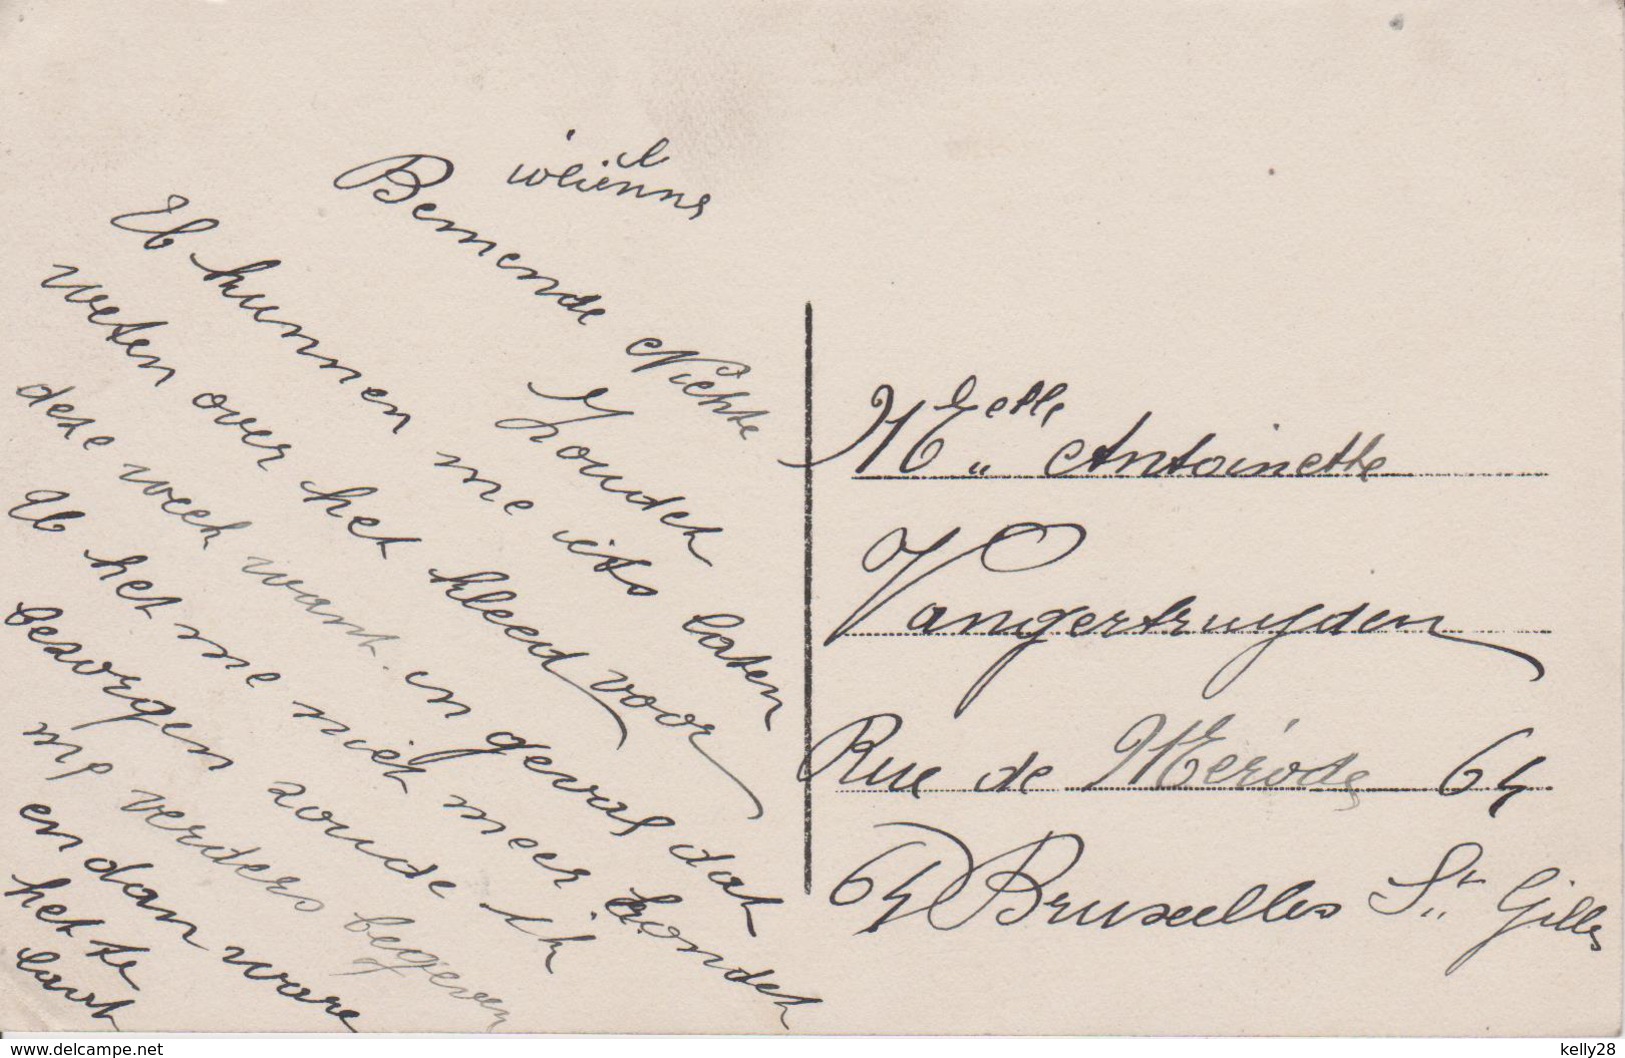 Beminde Nichte
Zoudet
Gb kunnen me iets laten
weten over het kleed voor
deze week want in geval dat
Gb het me niet meer kondet
bezorgen zoude ik
me verders begeven
en dan ware
het te
laat
Melle Antoinette
Vangertruyden
Rue de Mérode 64
64 Bruxelles St Gilles
www.delcampe.net
kelly28